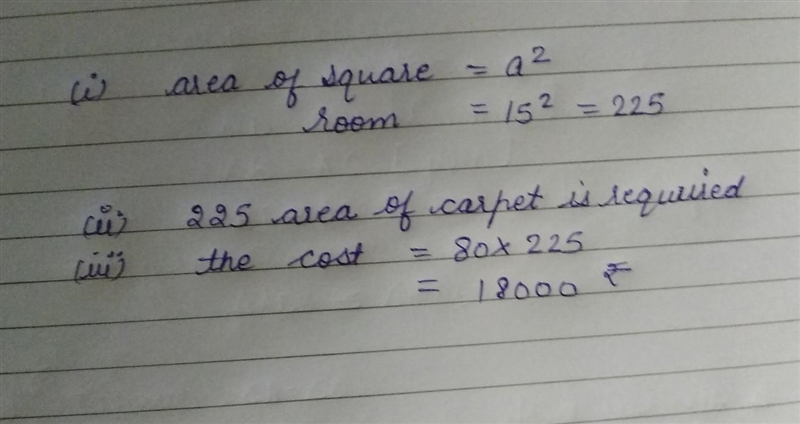 (i) area of square = a²
room = 15² = 225
(ii) 225 area of carpet is requried
(iii) the cost = 80 x 225
= 18000 ₹